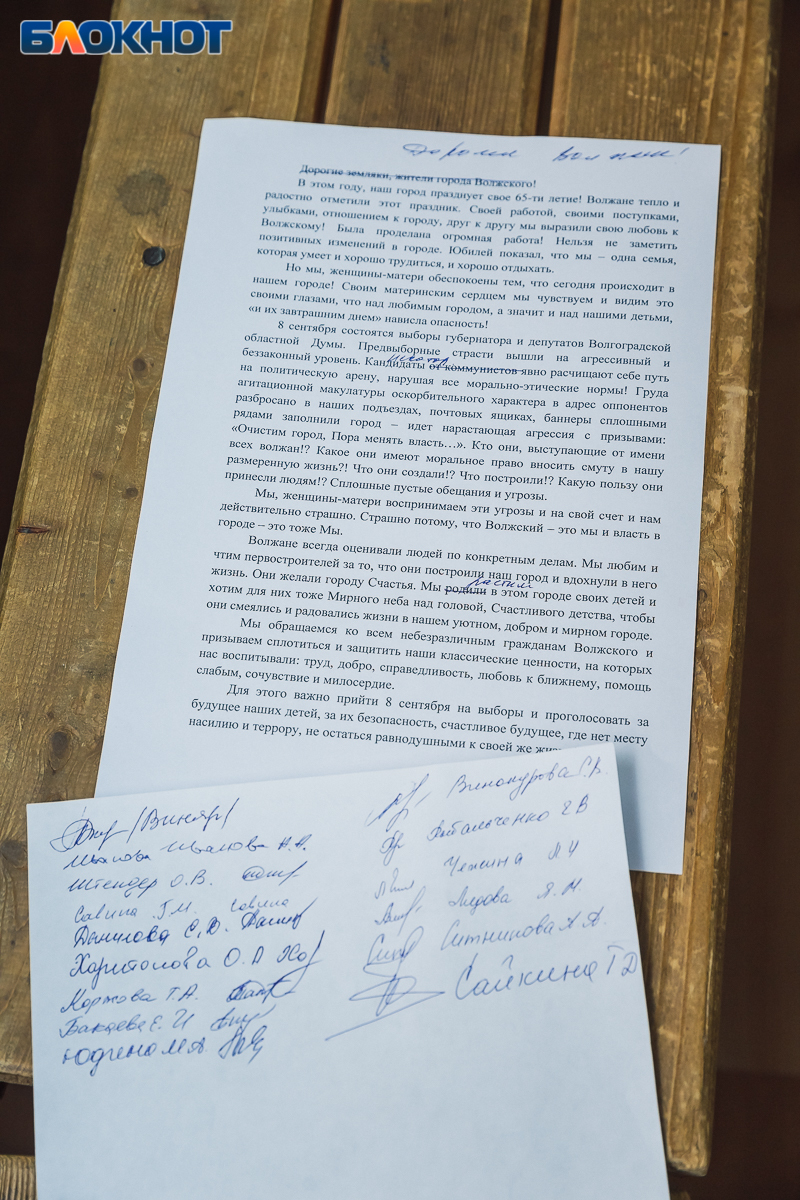 БЛОКНОТ
Дорогие волжане!
Дорогие земляки, жители города Волжского!
В этом году, наш город празднует свое 65-ти летие! Волжане тепло и
радостно отметили этот праздник. Своей работой, своими поступками,
улыбками, отношением к городу, друг к другу мы выразили свою любовь к
Волжскому! Была проделана огромная работа! Нельзя не заметить
позитивных изменений в городе. Юбилей показал, что мы – одна семья,
которая умеет и хорошо трудиться, и хорошо отдыхать.
Но мы, женщины-матери обеспокоены тем, что сегодня происходит в
нашем городе! Своим материнским сердцем мы чувствуем и видим это
своими глазами, что над любимым городом, а значит и над нашими детьми,
«и их завтрашним днем» нависла опасность!
8 сентября состоятся выборы губернатора и депутатов Волгоградской
областной Думы. Предвыборные страсти вышли на агрессивный и
некоторые
беззаконный уровень. Кандидаты от коммунистов явно расчищают себе путь
на политическую арену, нарушая все морально-этические нормы! Груда
агитационной макулатуры оскорбительного характера в адрес оппонентов
разбросано в наших подъездах, почтовых ящиках, баннеры сплошными
рядами заполнили город – идет нарастающая агрессия с призывами:
«Очистим город, Пора менять власть…». Кто они, выступающие от имени
всех волжан!? Какое они имеют моральное право вносить смуту в нашу
размеренную жизнь?! Что они создали!? Что построили!? Какую пользу они
принесли людям!? Сплошные пустые обещания и угрозы.
Мы, женщины-матери воспринимаем эти угрозы и на свой счет и нам
действительно страшно. Страшно потому, что Волжский – это мы и власть в
городе – это тоже Мы.
Волжане всегда оценивали людей по конкретным делам. Мы любим и
чтим первостроителей за то, что они построили наш город и вдохнули в него
растим
жизнь. Они желали городу Счастья. Мы родили в этом городе своих детей и
хотим для них тоже Мирного неба над головой, Счастливого детства, чтобы
они смеялись и радовались жизни в нашем уютном, добром и мирном городе.
Мы обращаемся ко всем небезразличным гражданам Волжского и
призываем сплотиться и защитить наши классические ценности, на которых
нас воспитывали: труд, добро, справедливость, любовь к ближнему, помощь
слабым, сочувствие и милосердие.
Для этого важно прийти 8 сентября на выборы и проголосовать за
будущее наших детей, за их безопасность, счастливое будущее, где нет месту
насилию и террору, не остаться равнодушными к своей же
Иванова Н.А.
Штендер О.В.
Савина Г.М. Савина
Данилова С.Ю.
Харитонова О.А
Коржова Т.А.
Бакаева Е.И
Винокурова С.В.
Г В
Чехина Л.И
Лидова Л.М.
Ситникова А.А.
Сайкина Т Д